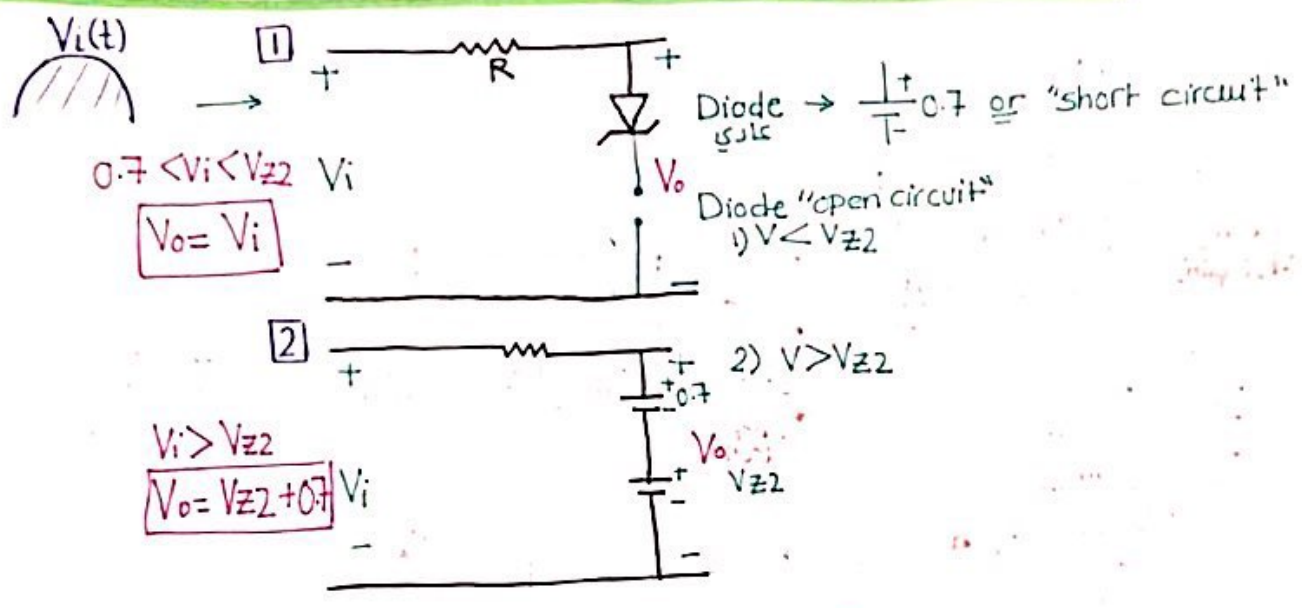 Vi(t)
1
+
R
+
Diode → + - 0.7 or "short circuit"
عادي
0.7 < Vi < Vz2
Vi
Vo
Vo = Vi
Diode "open circuit"
1) V < Vz2
-
2
+
+
2) V > Vz2
+ 0.7
-
Vi > Vz2
Vo
Vo = Vz2 + 0.7
Vi
+
Vz2
-
-
-